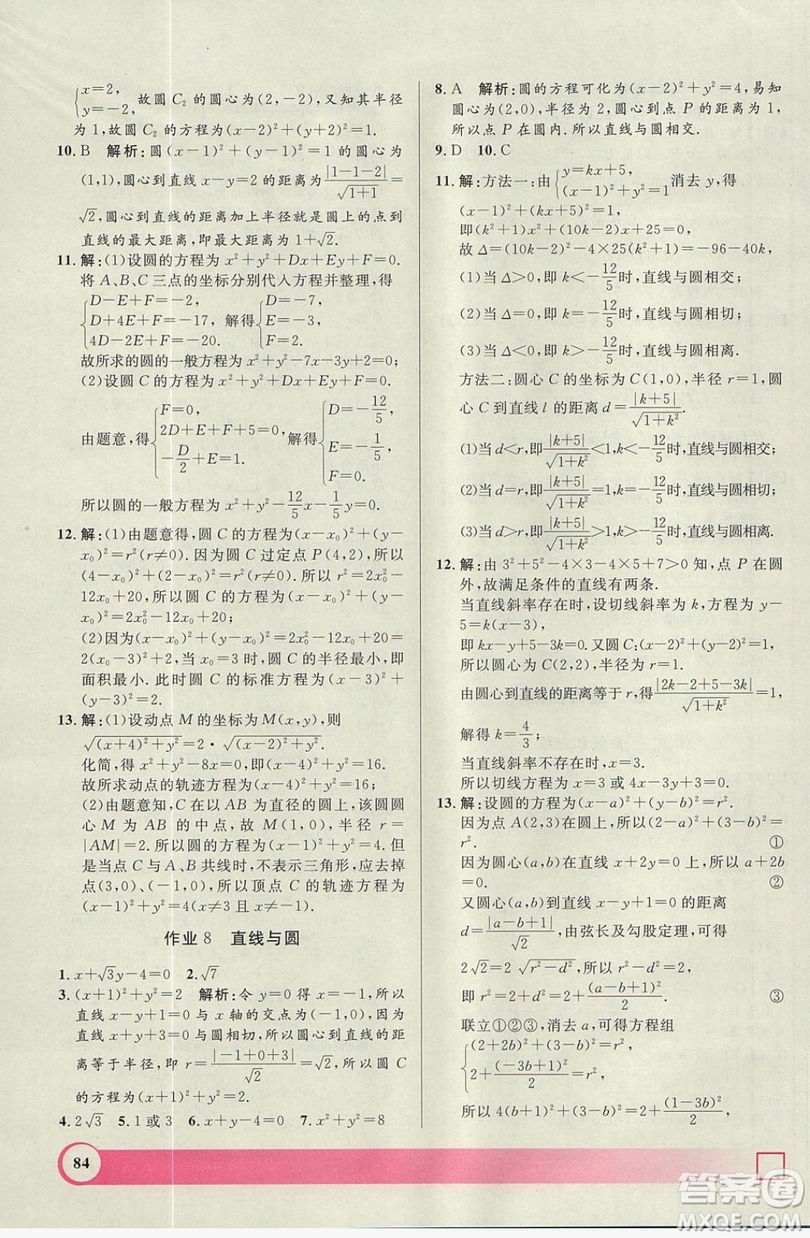 {x=2, y=-2. 故圆 C₂ 的圆心为(2,-2),又知其半径
为 1,故圆 C₂ 的方程为(x-2)²+(y+2)²=1.
10. B 解析:圆(x-1)²+(y-1)²=1 的圆心为
(1,1),圆心到直线 x-y=2 的距离为|1-1-2|/√(1+1)=
√2,圆心到直线的距离加上半径就是圆上的点到
直线的最大距离,即最大距离为 1+√2.
11. 解:(1)设圆的方程为 x²+y²+Dx+Ey+F=0.
将 A、B、C 三点的坐标分别代入方程并整理,得
{D-E+F=-2, D+4E+F=-17, 4D-2E+F=-20. 解得{D=-7, E=-3, F=2.
故所求的圆的一般方程为 x²+y²-7x-3y+2=0;
(2)设圆 C 的方程为 x²+y²+Dx+Ey+F=0.
由题意,得{F=0, 2D+E+F+5=0, -D/2+E=1. 解得{D=-12/5, E=-1/5, F=0.
所以圆的一般方程为 x²+y²-12/5x-1/5y=0.
12. 解:(1)由题意得,圆 C 的方程为(x-x₀)²+(y-
x₀)²=r²(r≠0). 因为圆 C 过定点 P(4,2),所以
(4-x₀)²+(2-x₀)²=r²(r≠0). 所以 r²=2x₀²
-12x₀+20. 所以圆 C 的方程为(x-x₀)²+(y-
x₀)²=2x₀²-12x₀+20.
(2)因为(x-x₀)²+(y-x₀)²=2x₀²-12x₀+20=
2(x₀-3)²+2,当 x₀=3 时,圆 C 的半径最小,即
面积最小. 此时圆 C 的标准方程为(x-3)²+
(y-3)²=2.
13. 解:(1)设动点 M 的坐标为M(x,y),则
√((x+4)²+y²)=2·√((x-2)²+y²).
化简,得(x-4)²+y²=16,即(x-4)²+y²=16.
故所求动点的轨迹方程为(x-4)²+y²=16.
(2)由题意知,C 在以 AB 为直径的圆上,该圆圆
心 M 为 AB 的中点,故 M(1,0),半径 r=
|AM|=2. 所以圆的方程为(x-1)²+y²=4.
当点 C 与 A、B 共线时,不表示三角形,应去掉
点(3,0)、(-1,0),所以顶点 C 的轨迹方程为
(x-1)²+y²=4(x≠3 且 x≠-1).
作业 8 直线与圆
1. x+√3y-4=0 2. √7
3. (x+1)²+y²=2 解析:令 y=0 得 x=-1,所以
直线 x-y+1=0 与 x 轴的交点为(-1,0),因为
直线 x+y+3=0 与圆相切,所以圆心到直线的距
离等于半径,即 r=|-1+0+3|/√2=√2. 所以圆 C
的方程为(x+1)²+y²=2.
4. 2√3 5. 1 或 3 6. x+y-4=0 7. x²+y²=8
8. A 解析:圆的方程可化为(x-2)²+y²=4,易知
圆心为(2,0),半径为 2,圆心到点 P 的距离为 1,
所以点 P 在圆内. 所以直线与圆相交.
9. D 10. C
11. 解:方法一:由{y=kx+5, (x-1)²+y²=1 消去 y,得
(x-1)²+(kx+5)²=1.
即(k²+1)x²+(10k-2)x+25=0.
故 Δ=(10k-2)²-4×25(k²+1)=-96-40k.
(1)当 Δ>0,即 k<-12/5时,直线与圆相交;
(2)当 Δ=0,即 k=-12/5时,直线与圆相切;
(3)当 Δ<0,即 k>-12/5时,直线与圆相离.
方法二:圆心 C 的坐标为 C(1,0),半径 r=1,圆
心 C 到直线 l 的距离 d=|k+5|/√(1+k²).
(1)当 d<r,即|k+5|/√(1+k²)<1,k<-12/5时,直线与圆相交;
(2)当 d=r,即|k+5|/√(1+k²)=1,k=-12/5时,直线与圆相切;
(3)当 d>r,即|k+5|/√(1+k²)>1,k>-12/5时,直线与圆相离.
12. 解:由 3²+5²-4×3-4×5+7>0 知,点 P 在圆
外,故满足条件的直线有两条.
当直线斜率存在时,设切线斜率为 k,方程为 y-
5=k(x-3),
即 kx-y+5-3k=0. 又圆 C:(x-2)²+(y-2)²=1.
所以圆心为(2,2),半径为 r=1.
由圆心到直线的距离等于 r,得|2k-2+5-3k|/√(1+k²)=1.
解得 k=4/3;
当直线斜率不存在时,直线为 x=3.
所以切线方程为 x=3 或 4x-3y+3=0.
13. 解:设圆的方程为(x-a)²+(y-b)²=r².
因为点 A(2,3)在圆上,所以(2-a)²+(3-b)²=
r². ①
因为圆心(a,b)在直线 x+2y=0 上,所以 a+2b
=0. ②
又圆心(a,b)到直线 x-y+1=0 的距离
d=|a-b+1|/√2,由弦长及勾股定理,得
2√2=2√(r²-d²),所以 r²-d²=2.
即 r²=d²+2=2+(a-b+1)²/2. ③
联立①②③,消去 a,可得方程组
{(2+2b)²+(3-b)²=r², 2+(-3b+1)²/2=r².
所以 4(b+1)²+(b-3)²=2+(1-3b)²/2,
84
答案圈
MXQE.COM